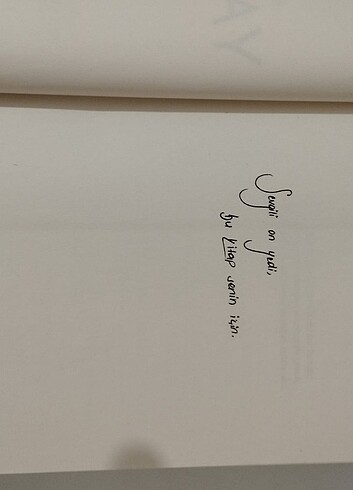 AY
Sevgili on yedi,
bu kitap senin için.